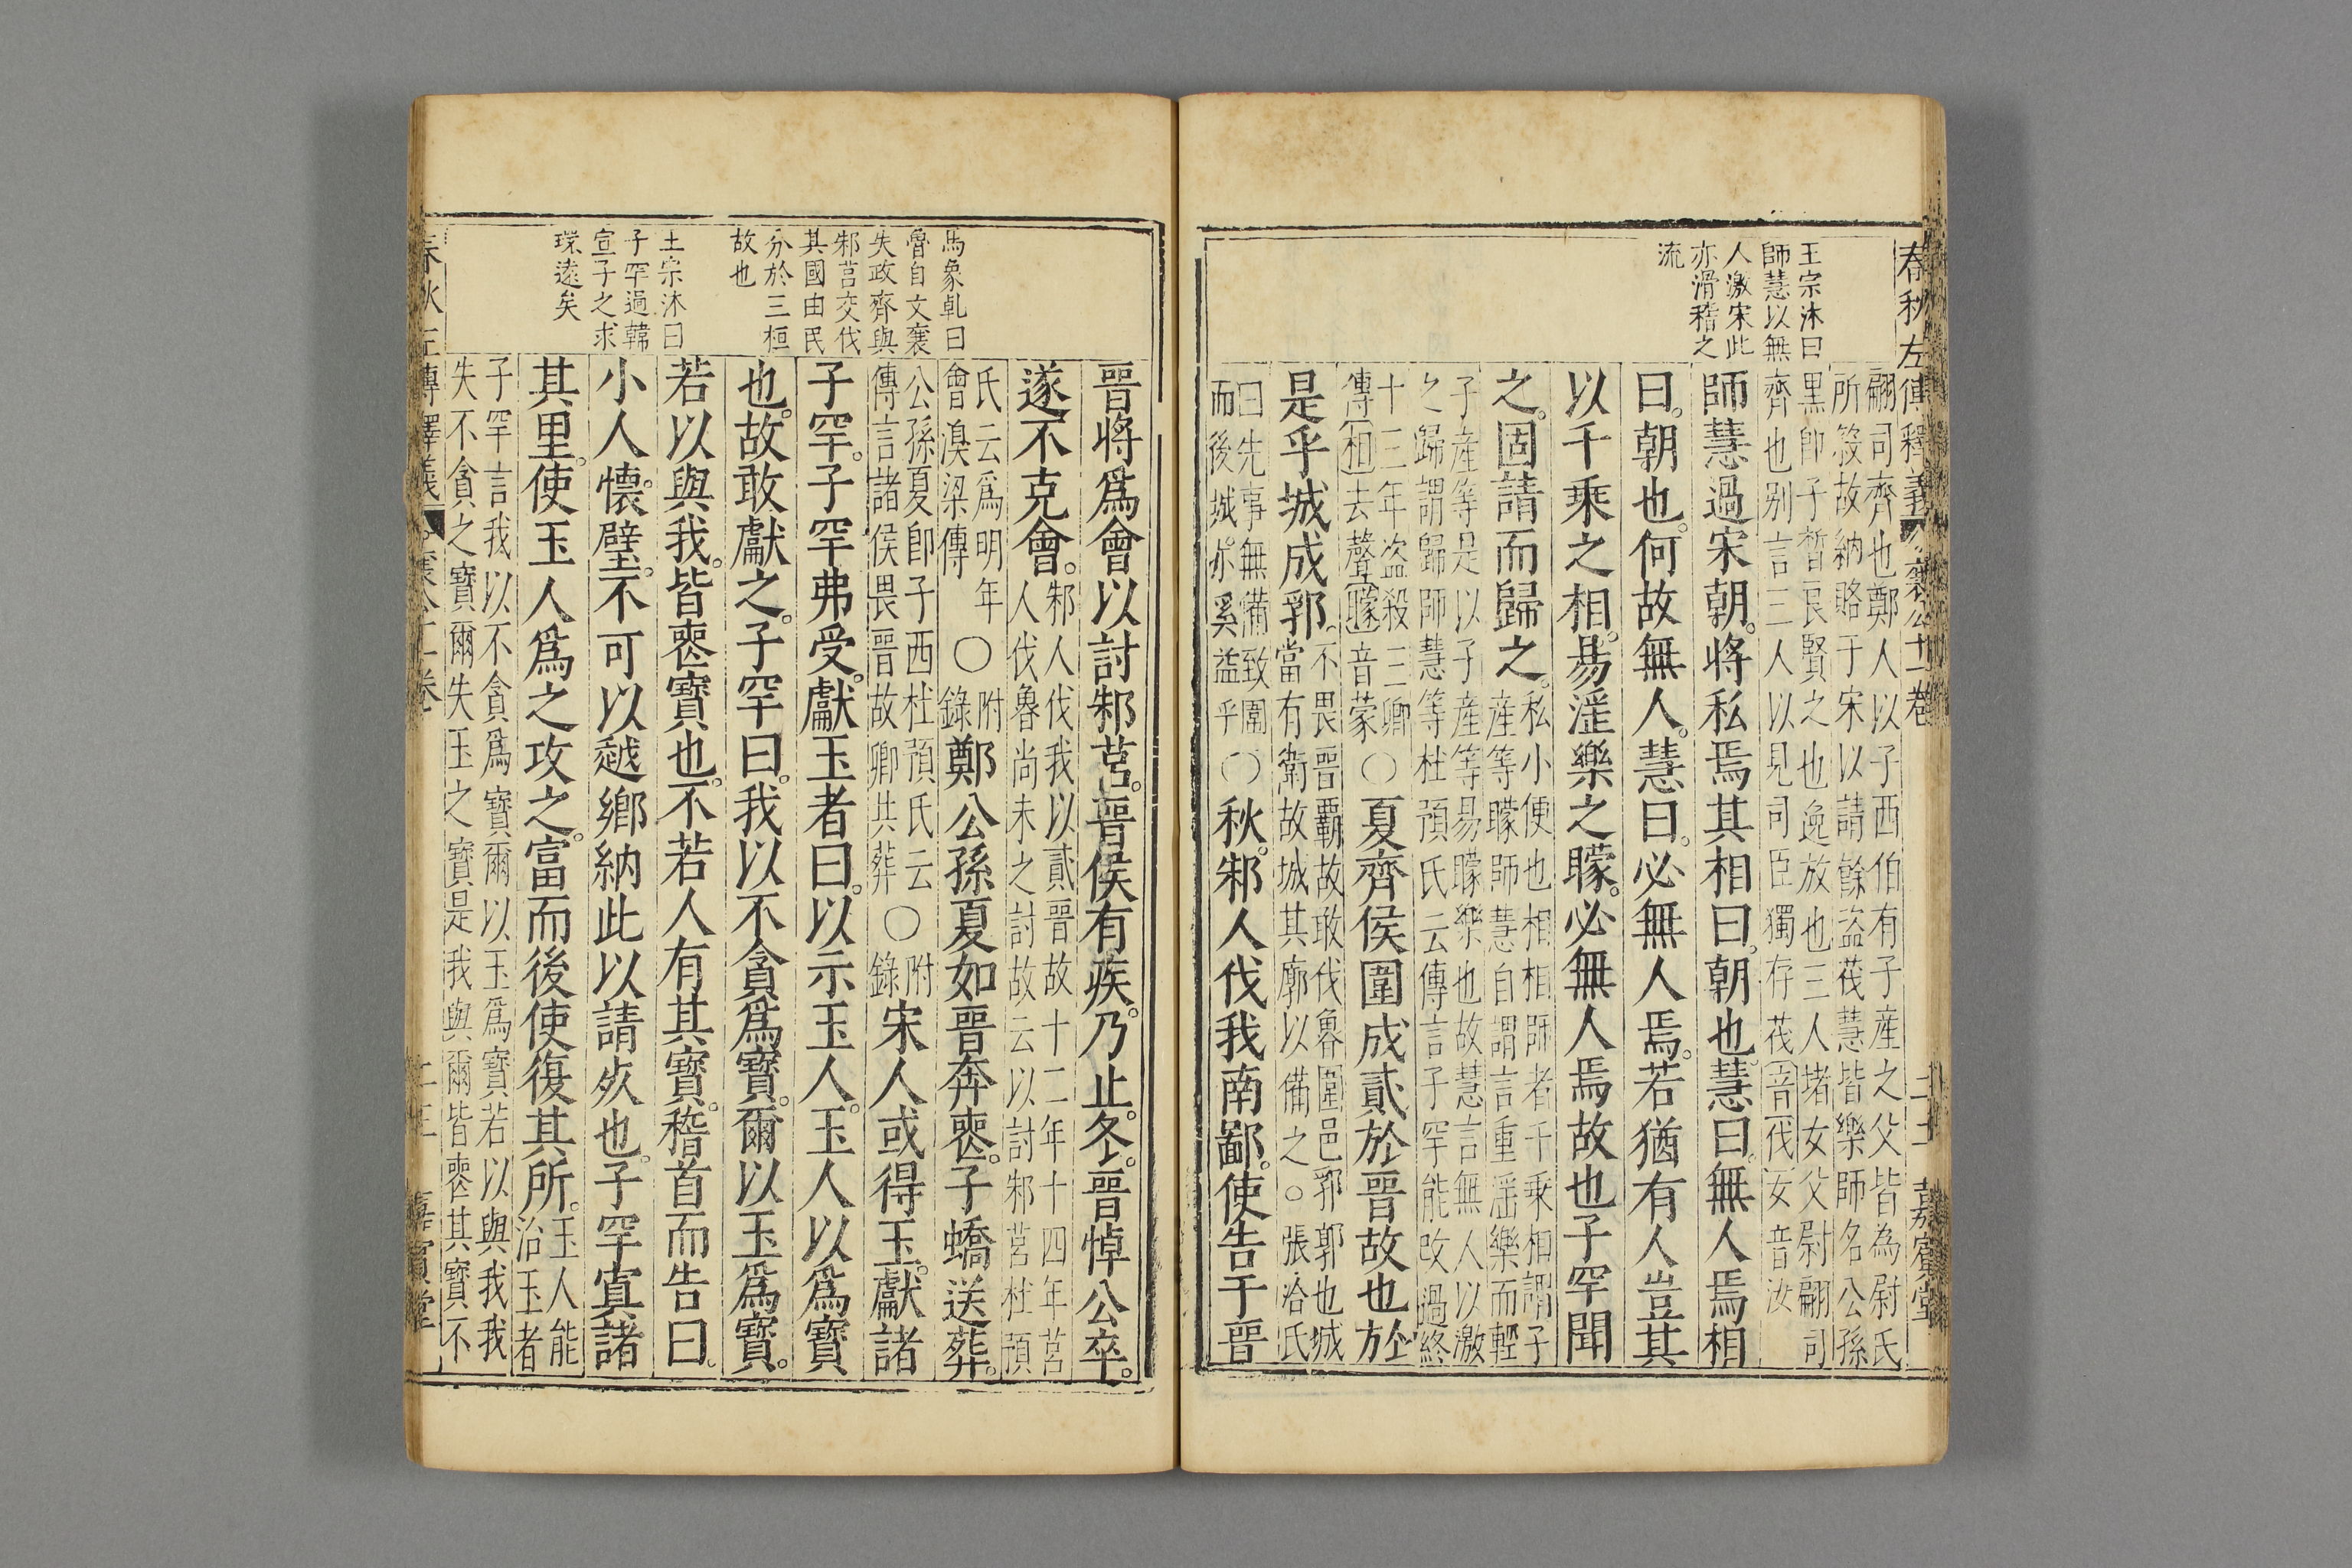 春秋左傳釋義 襄公十一卷 二十二 嘉賓堂
王宗沐曰
師慧以無
人激宋此
亦滑稽之
流
翩司齊也鄭人以子西伯有子產之父皆為尉氏
所殺故納賂于宋以請餘盜茷慧皆樂師名公孫
黑即子皙良賢之也逸放也三人堵女父尉翩司
齊也別言三人以見司臣獨存茷音伐女音汝
師慧過宋朝。將私焉其相曰。朝也。慧曰。無人焉相
曰。朝也。何故無人。慧曰。必無人焉。若猶有人豈其
以千乘之相。易淫樂之矇。必無人焉故也子罕聞
之。固請而歸之。
私小便也相相師者千乘相謂子
產等矇師慧自謂言重淫樂而輕
子產等是以子產等易矇樂也故慧言無人以激
之歸謂歸師慧等杜預氏云傳言子罕能改過終
十三年盜殺三卿
傳相去聲矇音蒙
○夏齊侯圍成貳於晉故也於
是乎城成郛。
不畏晉霸故敢伐魯圍邑郛郭也城
當有衛故城其廓以備之○張洽氏
曰先事無備致圍
而後城。亦奚益乎
○秋。邾人伐我南鄙。使告于晉
馬象乹曰
魯自文襄
失政齊與
邾莒交伐
其國由民
分於三桓
故也
王宗沐曰
子罕過韓
宣子之求
環遠矣
晉將爲會以討邾莒。晉侯有疾。乃止。冬。晉悼公卒。
遂不克會。
邾人伐我以貳晉故十二年十四年莒
人伐魯尚未之討故云以討邾莒杜預
氏云爲明年
會湨梁傳
○
附
錄
鄭公孫夏如晉奔喪。子蟜送葬。
公孫夏即子西杜預氏云
傳言諸侯畏晉故卿共葬
○
附
錄
宋人或得玉。獻諸
子罕。子罕弗受。獻玉者曰。以示玉人。玉人以爲寶
也。故敢獻之。子罕曰。我以不貪爲寶。爾以玉爲寶。
若以與我。皆喪寶也。不若人有其寶。稽首而告曰。
小人懷璧。不可以越鄉納此以請死也。子罕寘諸
其里。使玉人爲之攻之。富而後使復其所。
玉人能
治玉者
子罕言我以不貪爲寶爾以玉爲寶若以與我我
失不貪之寶爾失玉之寶是我與爾皆喪其寶不
春秋左傳釋義 襄公十一卷 二十三 嘉賓堂